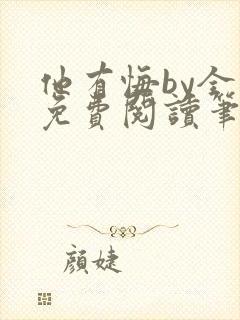 他有悔by金
免費閱讀筆
顏婕